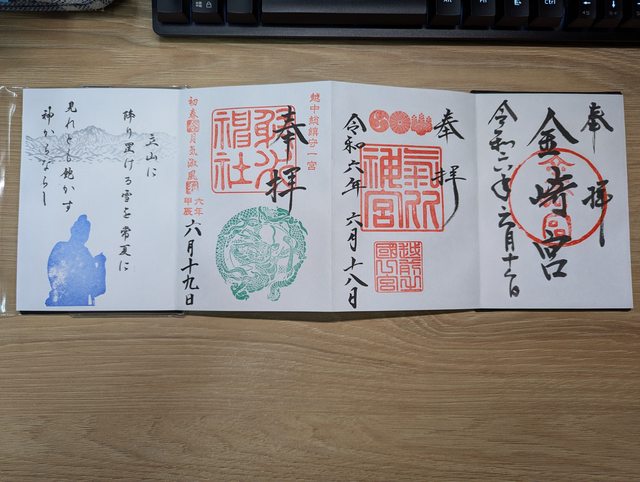 奉拝
金崎宮
令和六年六月
奉拝
氣比神宮
令和六年 六月十八日
越中総鎮守一宮
奉拝
射水神社
初春令月気淑風和
六年
甲辰
六月十九日
立山に
降り置ける雪を常夏に
見れども飽かず
神からならし